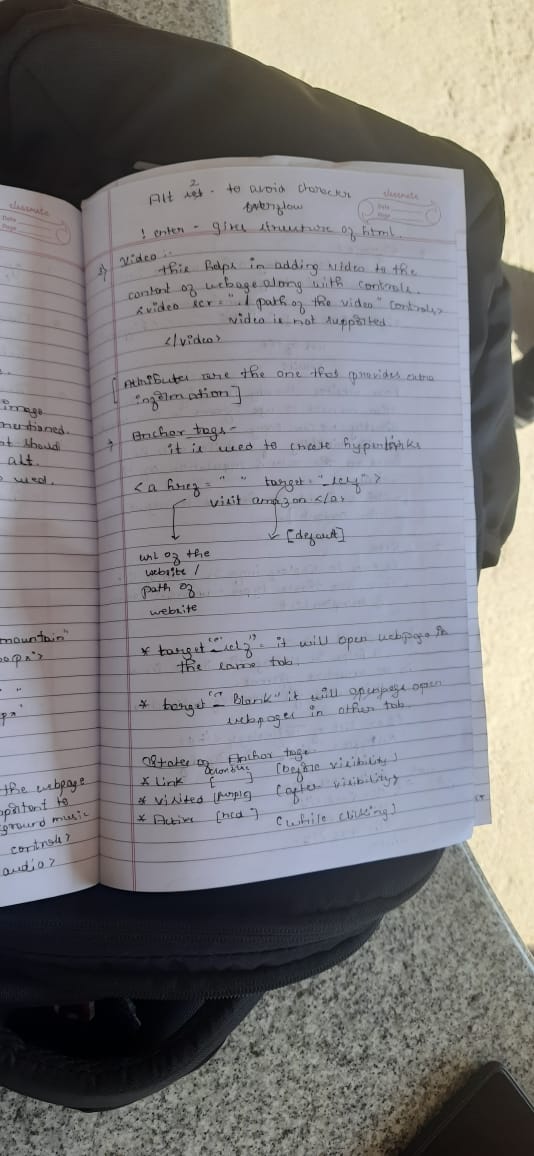 classmate
Date
Page
image
mentioned.
should
alt.
used.
mountain"
the webpage
ground music
controls>
audio>
classmate
Date
Page
2
Alt - to avoid character
overflow
! enter - gives structure of html.
Video :-
this helps in adding video to the
content of webpage along with controls.
<video scr = " path of the video" controls>
video is not supported
</video>
[Attributes are the one that provides extra
information]
Anchor tags -
it is used to create hyperlinks
<a href = " " target = "_self" >
visit amazon </a>
[default]
url of the
website /
path of
website
* target "_self" = it will open webpage in
the same tab.
* target "_Blank" it will openpage open
webpages in other tab.
States of Anchor tags
* Link [ ] (before visibility)
* Visited [purple] (after visibility>
* Active [red] (while clicking)